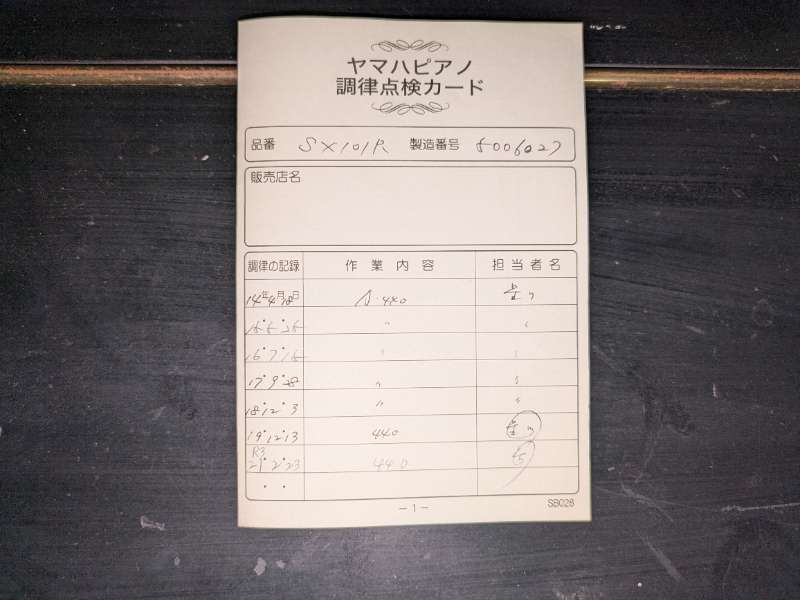 ヤマハピアノ
調律点検カード
品番 SX101R 製造番号 5006027
販売店名
調律の記録 作業内容 担当者名
14年4月18日 A・440
15・5・25 〃 〃
16・7・15 〃 〃
17・9・28 〃 〃
18・12・3 〃 〃
19・12・13 440
R3
21・2・23 440
・ ・
－1－ SB026